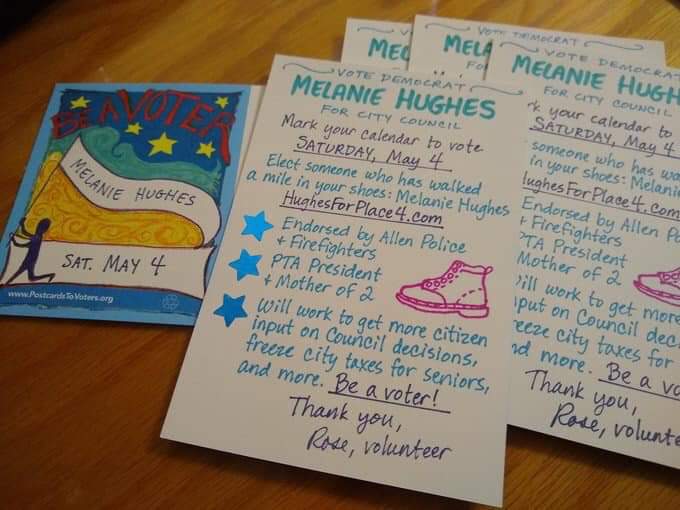 BE A VOTER
MELANIE HUGHES
SAT. MAY 4
www.PostcardsToVoters.org
VOTE DEMOCRAT
MELANIE HUGHES
FOR CITY COUNCIL
Mark your calendar to vote
SATURDAY, May 4
Elect someone who has walked
a mile in your shoes: Melanie Hughes
HughesForPlace4.com
Endorsed by Allen Police
+ Firefighters
PTA President
+ Mother of 2
Will work to get more citizen
input on Council decisions,
freeze city taxes for seniors,
and more. Be a voter!
Thank you,
Rose, volunteer
VOTE DEMOCRAT
MELA
FO
VOTE DEMOCRAT
MELANIE HUGH
FOR CITY COUNCIL
your calendar to
SATURDAY, May 4
someone who has wa
in your shoes: Melanie
HughesForPlace4.com
Endorsed by Allen Po
+ Firefighters
PTA President
Mother of 2
ill work to get more
put on Council deci
eeze city taxes for
nd more. Be a vo
Thank you,
Rose, volunte